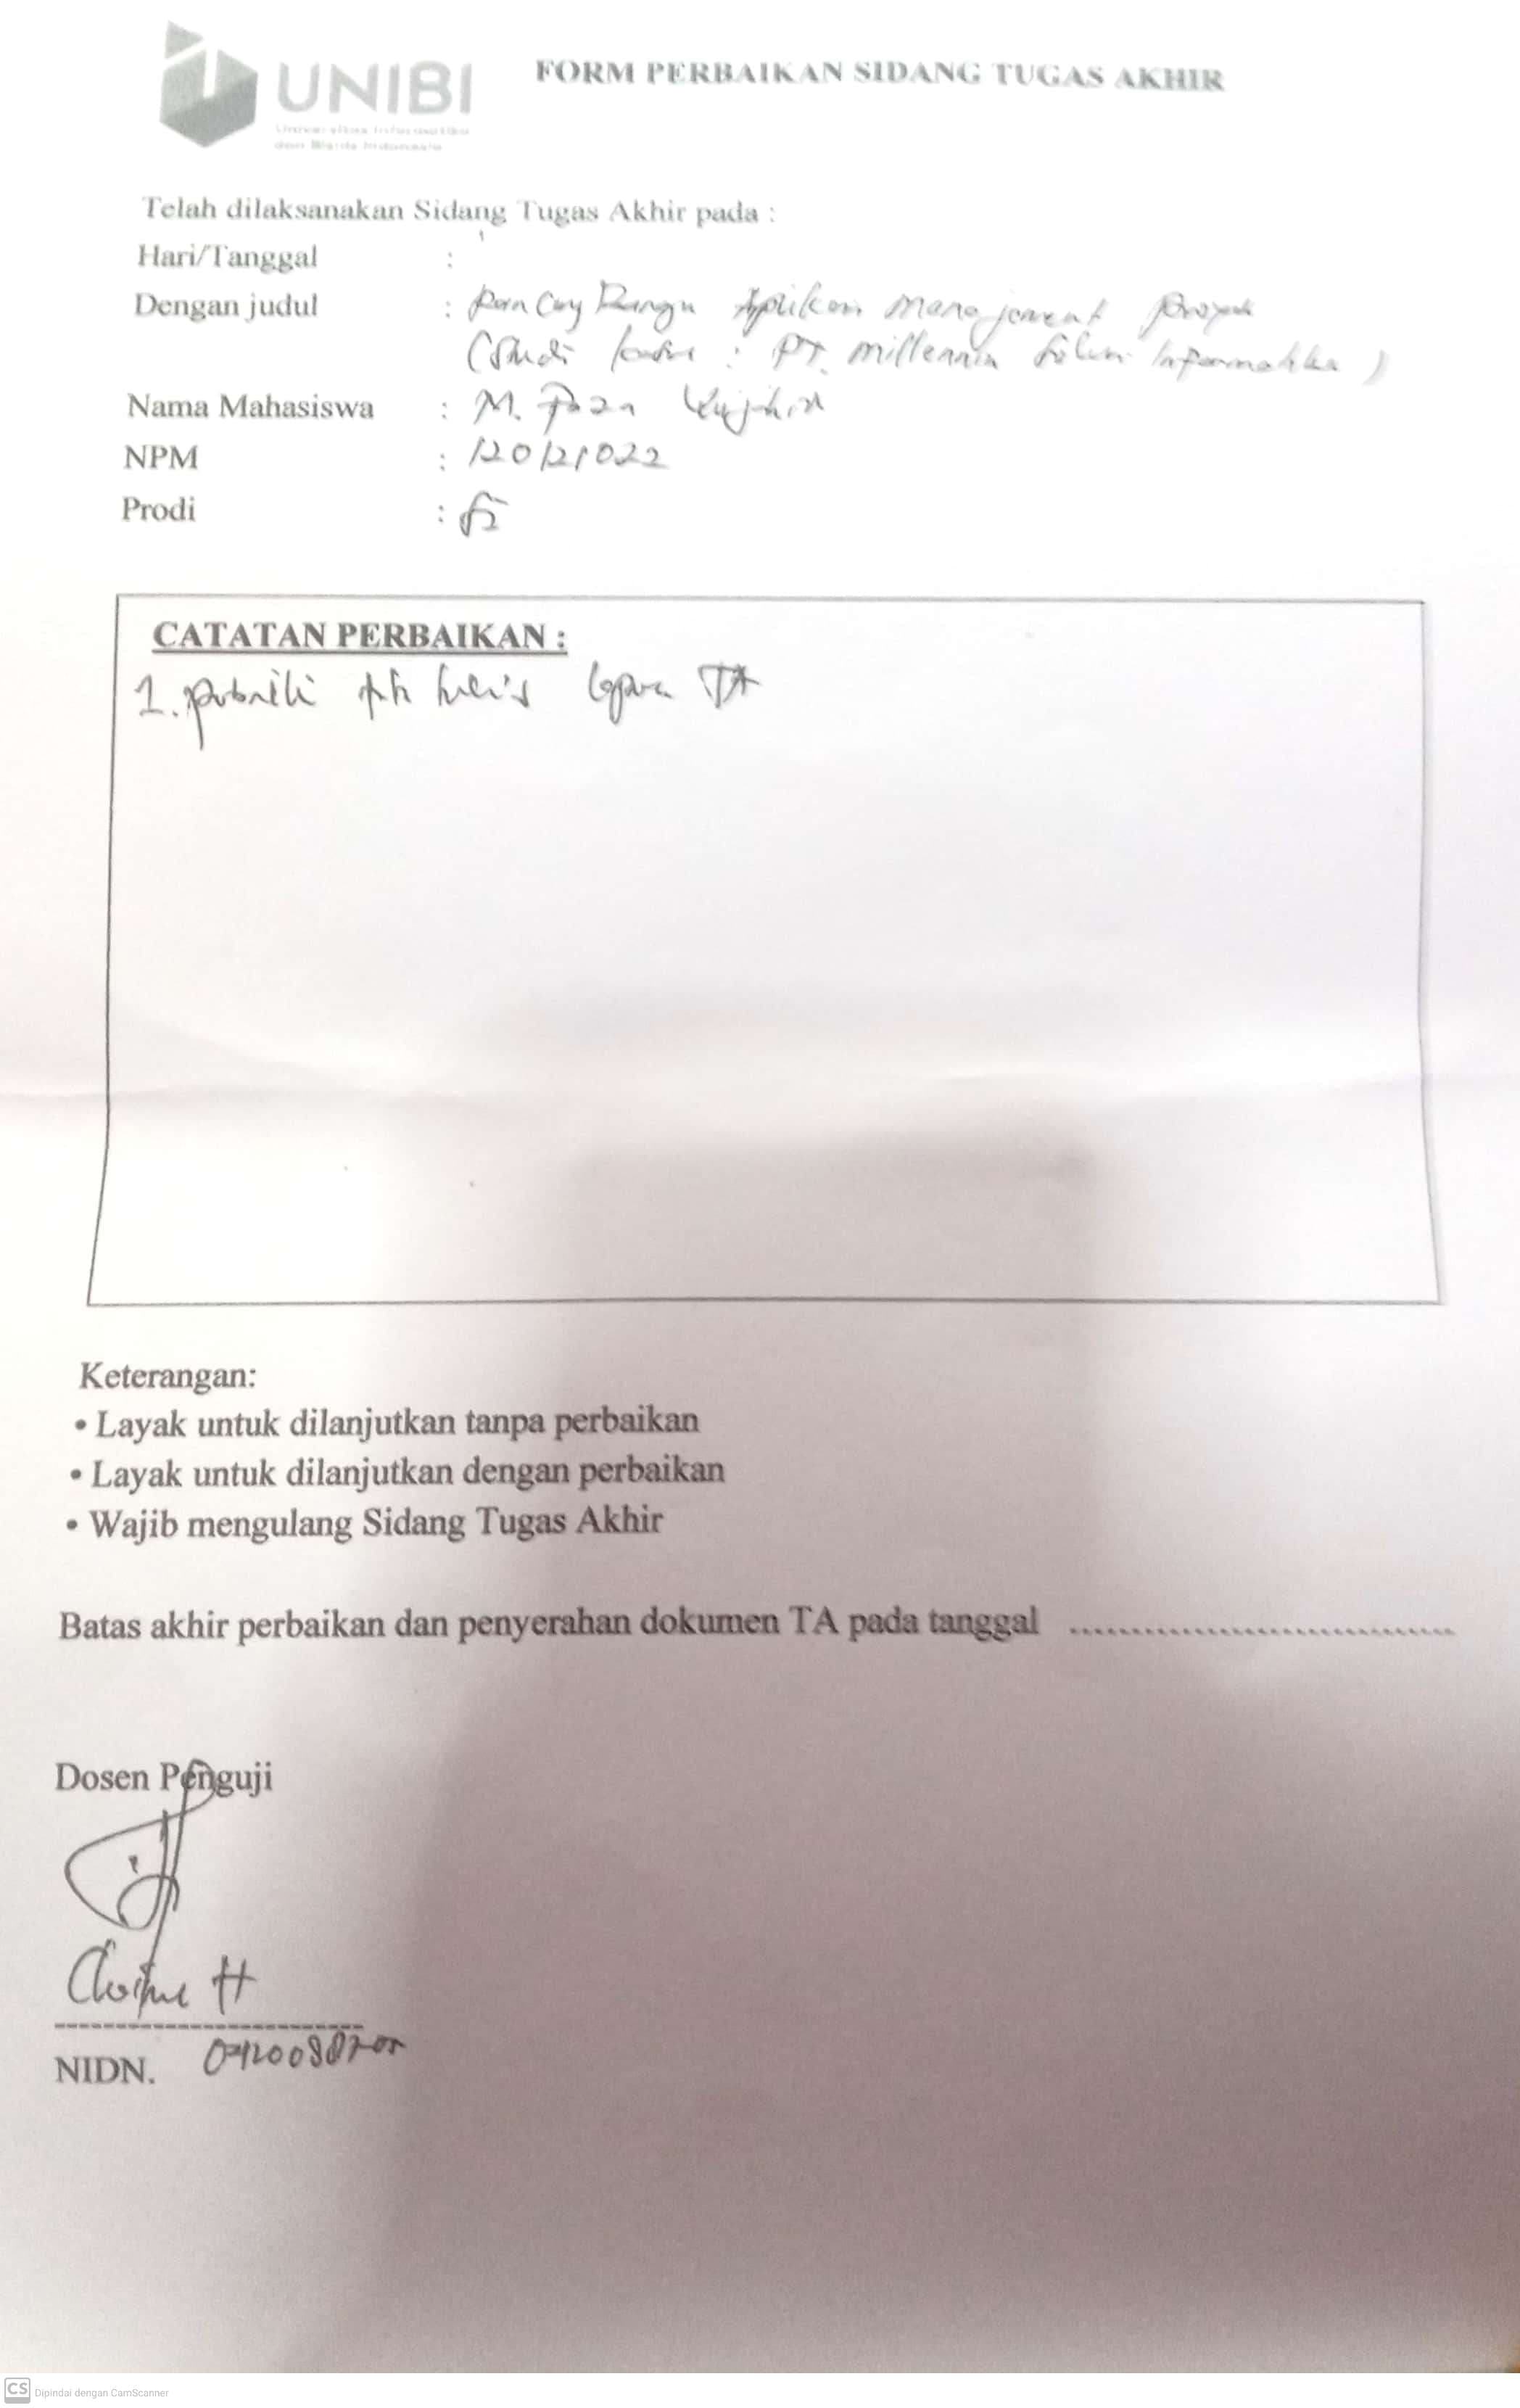 UNIBI
Universitas Informatika
dan Bisnis Indonesia
FORM PERBAIKAN SIDANG TUGAS AKHIR
Telah dilaksanakan Sidang Tugas Akhir pada :
Hari/Tanggal :
Dengan judul : Aplikasi Manajement Proyek
(Studi : PT. Millennia Informatika )
Nama Mahasiswa : M.
NPM : 120121022
Prodi : SI
CATATAN PERBAIKAN :
1. TA
Keterangan:
• Layak untuk dilanjutkan tanpa perbaikan
• Layak untuk dilanjutkan dengan perbaikan
• Wajib mengulang Sidang Tugas Akhir
Batas akhir perbaikan dan penyerahan dokumen TA pada tanggal ................................
Dosen Penguji
H
NIDN.
CS Dipindai dengan CamScanner